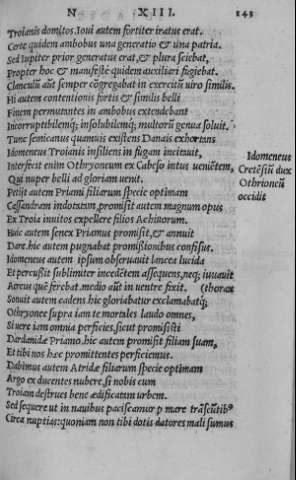 N XIII. 143
Troianis domitos. Ioui autem fortiter iratus erat.
Certe quidem ambobus una generatio & una patria.
Sed Iupiter prior generatus erat, & plura sciebat,
Propter hoc & manifeste quidem auxiliari fugiebat.
Clanculū aūt semper cōgregabat in exercitū uiro similis.
Hi autem contentionis fortis & similis belli
Finem permutantes in ambobus extendebant
Incorruptibilemq́; insolubilemq́; multorū genua soluit.
Tunc semicanus quamuis existens Danais exhortans
Idomeneus Troianis insiliens in fugam incitauit,
Interfecit enim Othryoneum ex Cabeso intus ueniētem,
Qui nuper belli ad gloriam uenit.
Petijt autem Priami filiarum specie optimam
Cassandram indotatam, promisit autem magnum opus
Ex Troia inuitos expellere filios Achiuorum.
Huic autem senex Priamus promisit, & annuit
Dare. hic autem pugnabat promißionibus confisus.
Idomeneus autem ipsum obseruauit lancea lucida
Et percußit sublimiter incedētem assequens, neq; iuuauit
Aereus quē ferebat. medio aūt in uentre fixit. (thorax
Sonuit autem cadens, hic gloriabatur exclamabatq́;
Othryonee supra iam te mortales laudo omnes,
Si uere iam omnia perficies, sicut promisisti
Dardanidæ Priamo. hic autem promisit filiam suam,
Et tibi nos hæc promittentes perficiemus.
Dabimus autem Atridæ filiarum specie optimam
Argo ex ducentes nubere, si nobis cum
Troiam destrues bene ædificatam urbem.
Sed sequere ut in nauibus paciscamur p mare trāseūtibᵒ
Circa nuptias: quoniam non tibi dotis datores mali sumus
Idomeneus
Cretēsiū dux
Othrioneū
occidit